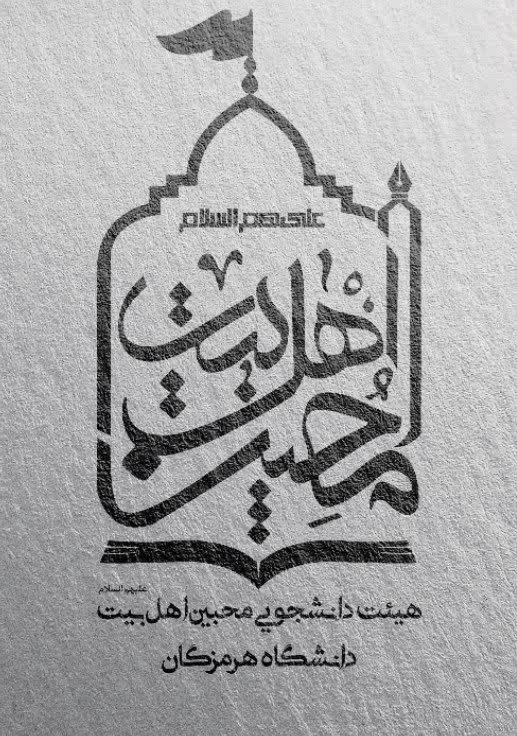 علیهم السلام
محبین اهل بیت
علیهم السلام
هیئت دانشجویی محبین اهل بیت
دانشگاه هرمزگان